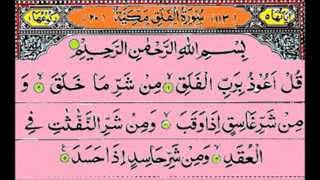 سُوْرَةُ الْفَلَقِ مَكِّيَّةٌ
بِسْمِ اللّٰهِ الرَّحْمٰنِ الرَّحِيْمِ
قُلْ اَعُوْذُ بِرَبِّ الْفَلَقِ ۙ مِنْ شَرِّ مَا خَلَقَ ۙ وَ
مِنْ شَرِّ غَاسِقٍ اِذَا وَقَبَ ۙ وَمِنْ شَرِّ النَّفّٰثٰتِ فِی
الْعُقَدِ ۙ وَمِنْ شَرِّ حَاسِدٍ اِذَا حَسَدَ